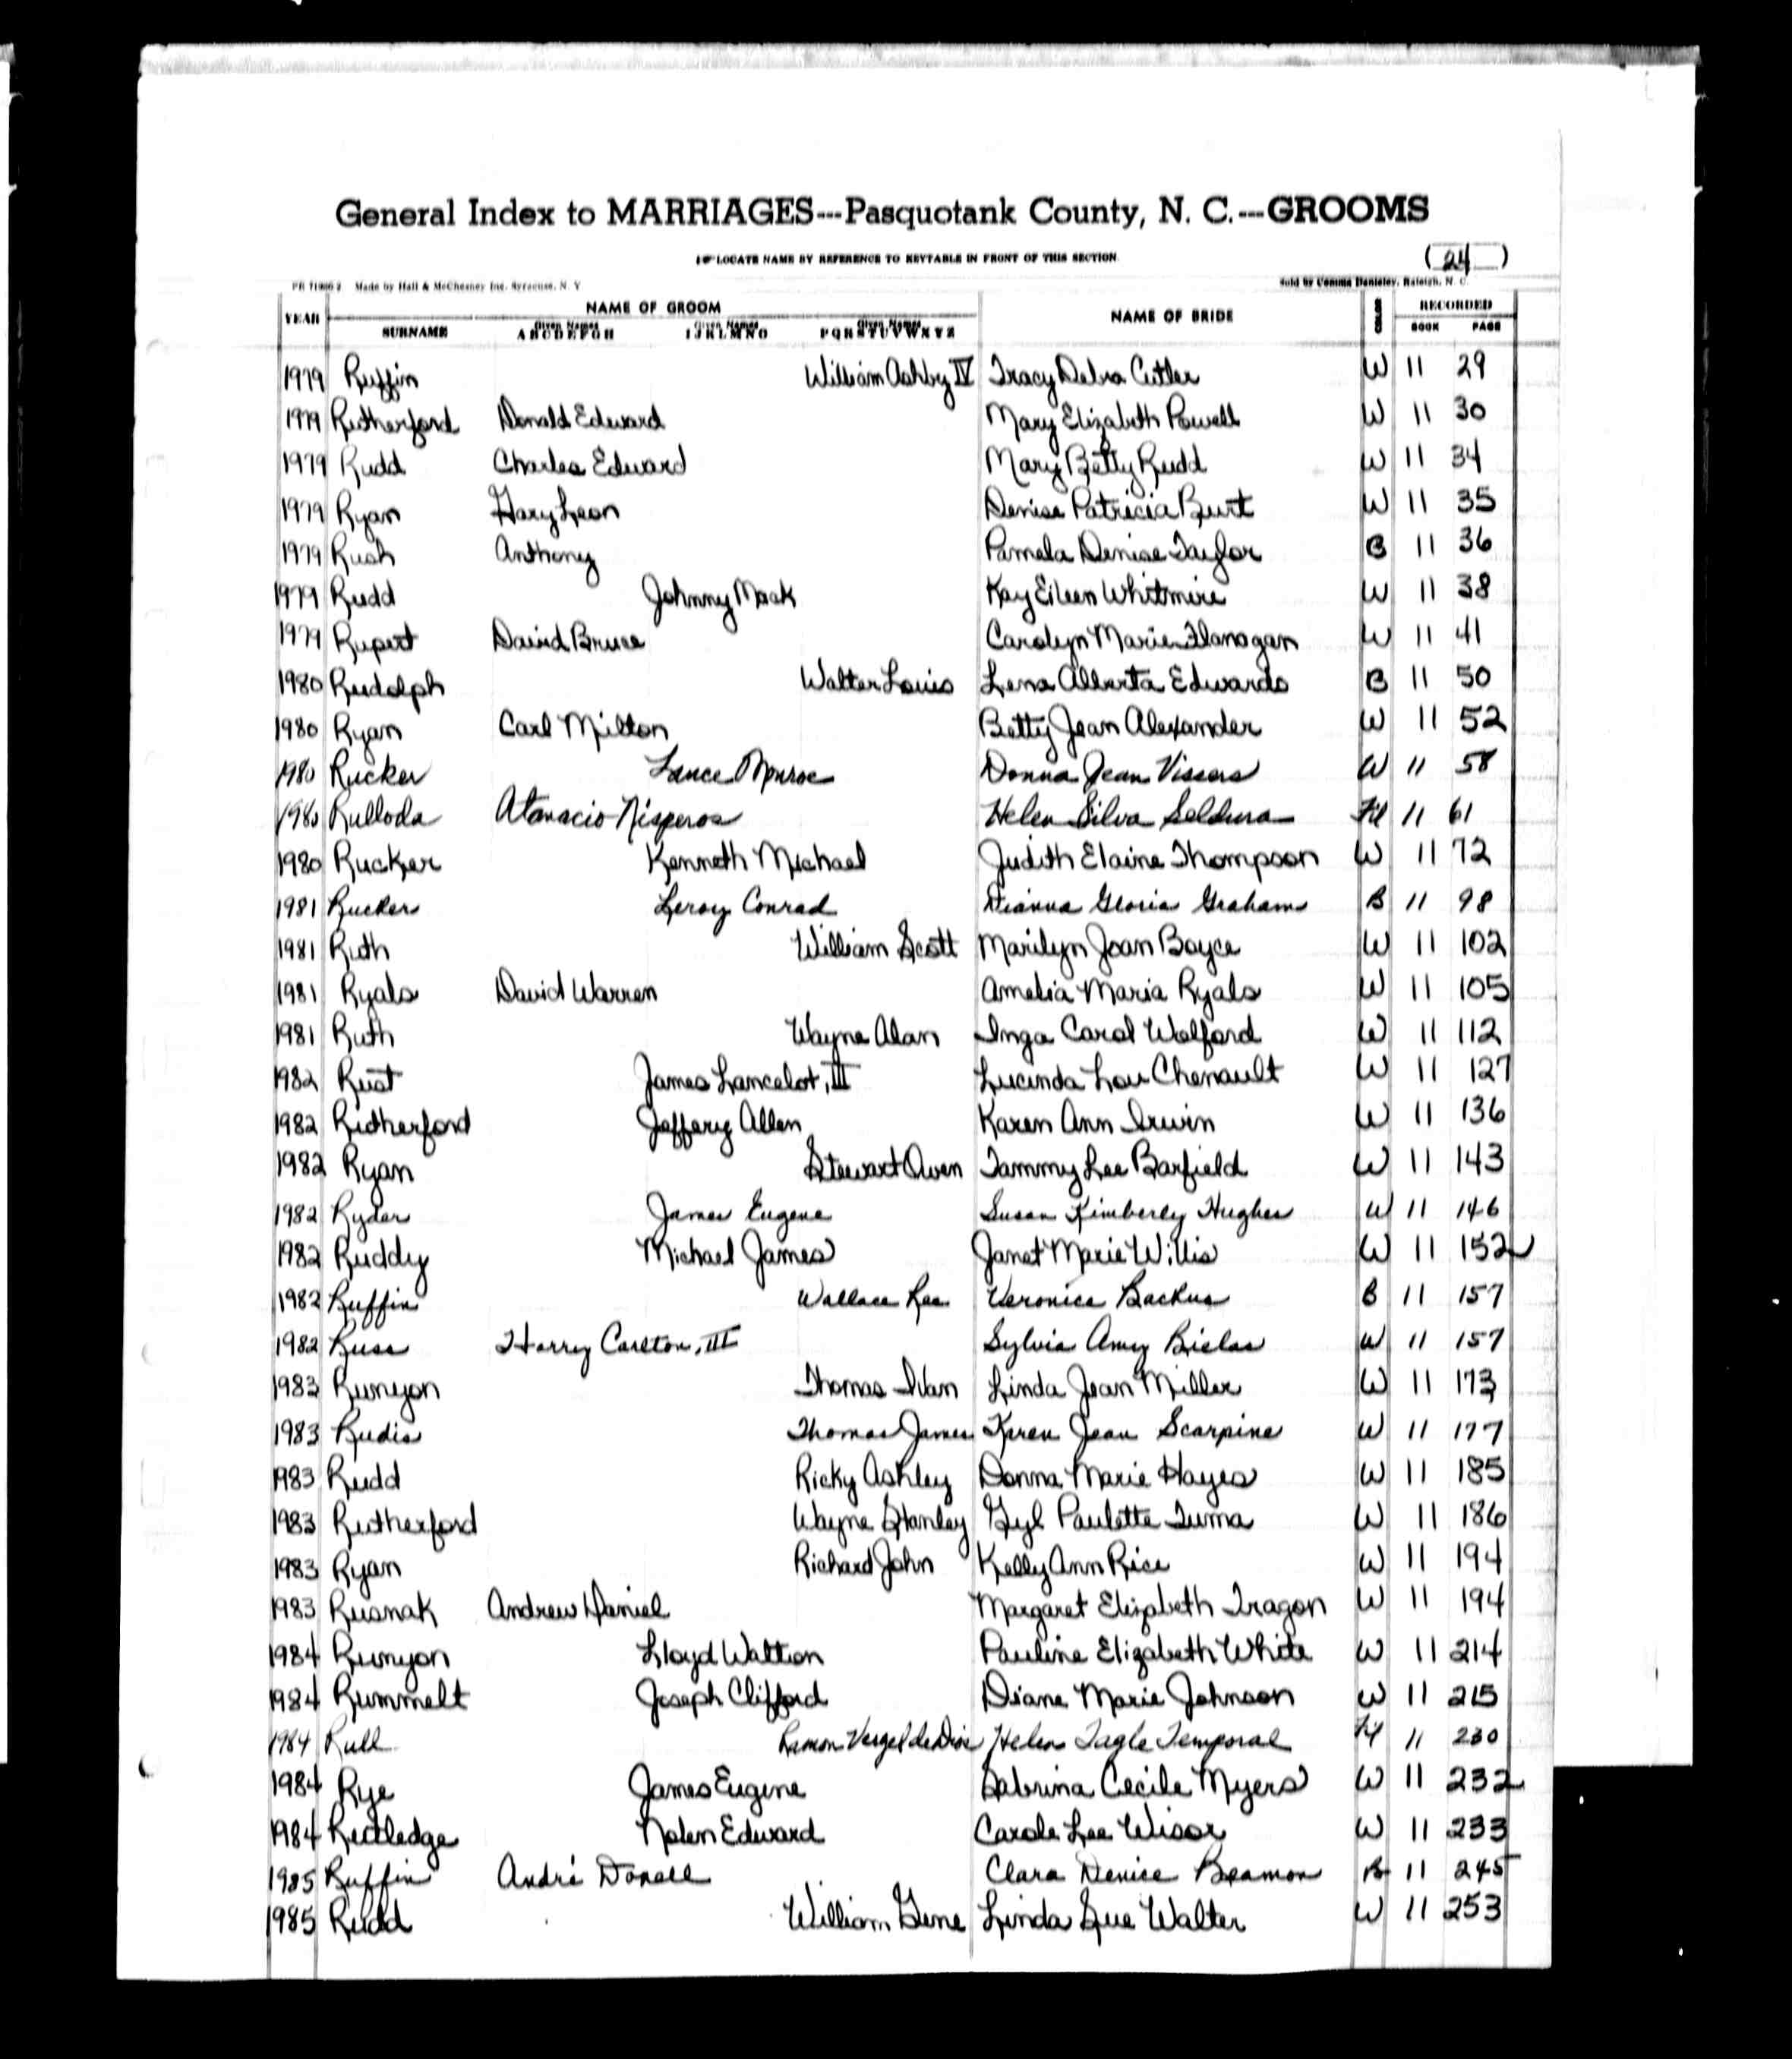 General Index to MARRIAGES---Pasquotank County, N. C.---GROOMS
LOCATE NAME BY REFERENCE TO KEYTABLE IN FRONT OF THIS SECTION
(24)
Made by Hall & McChesney Inc. Syracuse, N. Y. Sold by Raleigh, N. C.
YEAR NAME OF GROOM NAME OF BRIDE COLOR RECORDED
SURNAME Given Names ABCDEFGH Given Names IJKLMNO Given Names PQRSTUVWXYZ BOOK PAGE
1979 Ruffin William Ashby IV Tracy Debra Cutler W 11 29
1979 Rutherford Donald Edward Mary Elizabeth Powell W 11 30
1979 Rudd Charles Edward Mary Betty Rudd W 11 34
1979 Ryan Gary Leon Denise Patricia Burt W 11 35
1979 Rush Anthony Pamela Denise Taylor B 11 36
1979 Rudd Johnny Mack Kay Eileen Whitmire W 11 38
1979 Rupert David Bruce Carolyn Marie Flanagan W 11 41
1980 Rudolph Walter Louis Lena Alberta Edwards B 11 50
1980 Ryan Carl Milton Betty Jean Alexander W 11 52
1980 Rucker Lance Monroe Donna Jean Vissers W 11 58
1980 Rulloda Atanacio Nisperos Helen Silva Fil 11 61
1980 Rucker Kenneth Michael Judith Elaine Thompson W 11 72
1981 Rucker Leroy Conrad Dianna Gloria Graham B 11 98
1981 Ruth William Scott Marilyn Joan Boyce W 11 102
1981 Ryals David Warren Amelia Maria Ryals W 11 105
1981 Ruth Wayne Alan Inga Carol Wolford W 11 112
1982 Rust James Lancelot, III Lucinda Lou Chenault W 11 127
1982 Rutherford Jeffery Allen Karen Ann Irwin W 11 136
1982 Ryan Stewart Owen Tammy Lee Barfield W 11 143
1982 Ryder James Eugene Susan Kimberly Hughes W 11 146
1982 Ruddy Michael James Janet Marie Willis W 11 152
1982 Ruffin Wallace Lee Veronica Backus B 11 157
1982 Russ Harry Carlton, III Sylvia Amy Bielas W 11 157
1983 Runyon Thomas Ivan Linda Jean Miller W 11 173
1983 Rudis Thomas James Karen Jean Scarpine W 11 177
1983 Rudd Ricky Ashley Donna Marie Hayes W 11 185
1983 Rutherford Wayne Stanley Gyl Paulette Tuma W 11 186
1983 Ryan Richard John Kelly Ann Rice W 11 194
1983 Rusnak Andrew Daniel Margaret Elizabeth Tragon W 11 194
1984 Runyon Lloyd Walton Pauline Elizabeth White W 11 214
1984 Rummelt Joseph Clifford Diane Marie Johnson W 11 215
1984 Rull Ramon Vergel de Dios Helen Tagle Temporal Fil 11 230
1984 Rye James Eugene Sabrina Cecile Myers W 11 232
1984 Rutledge Nolen Edward Carole Lee Wisor W 11 233
1985 Ruffin André Donell Clara Denice Beamon B 11 245
1985 Rudd William Gene Linda Sue Walter W 11 253